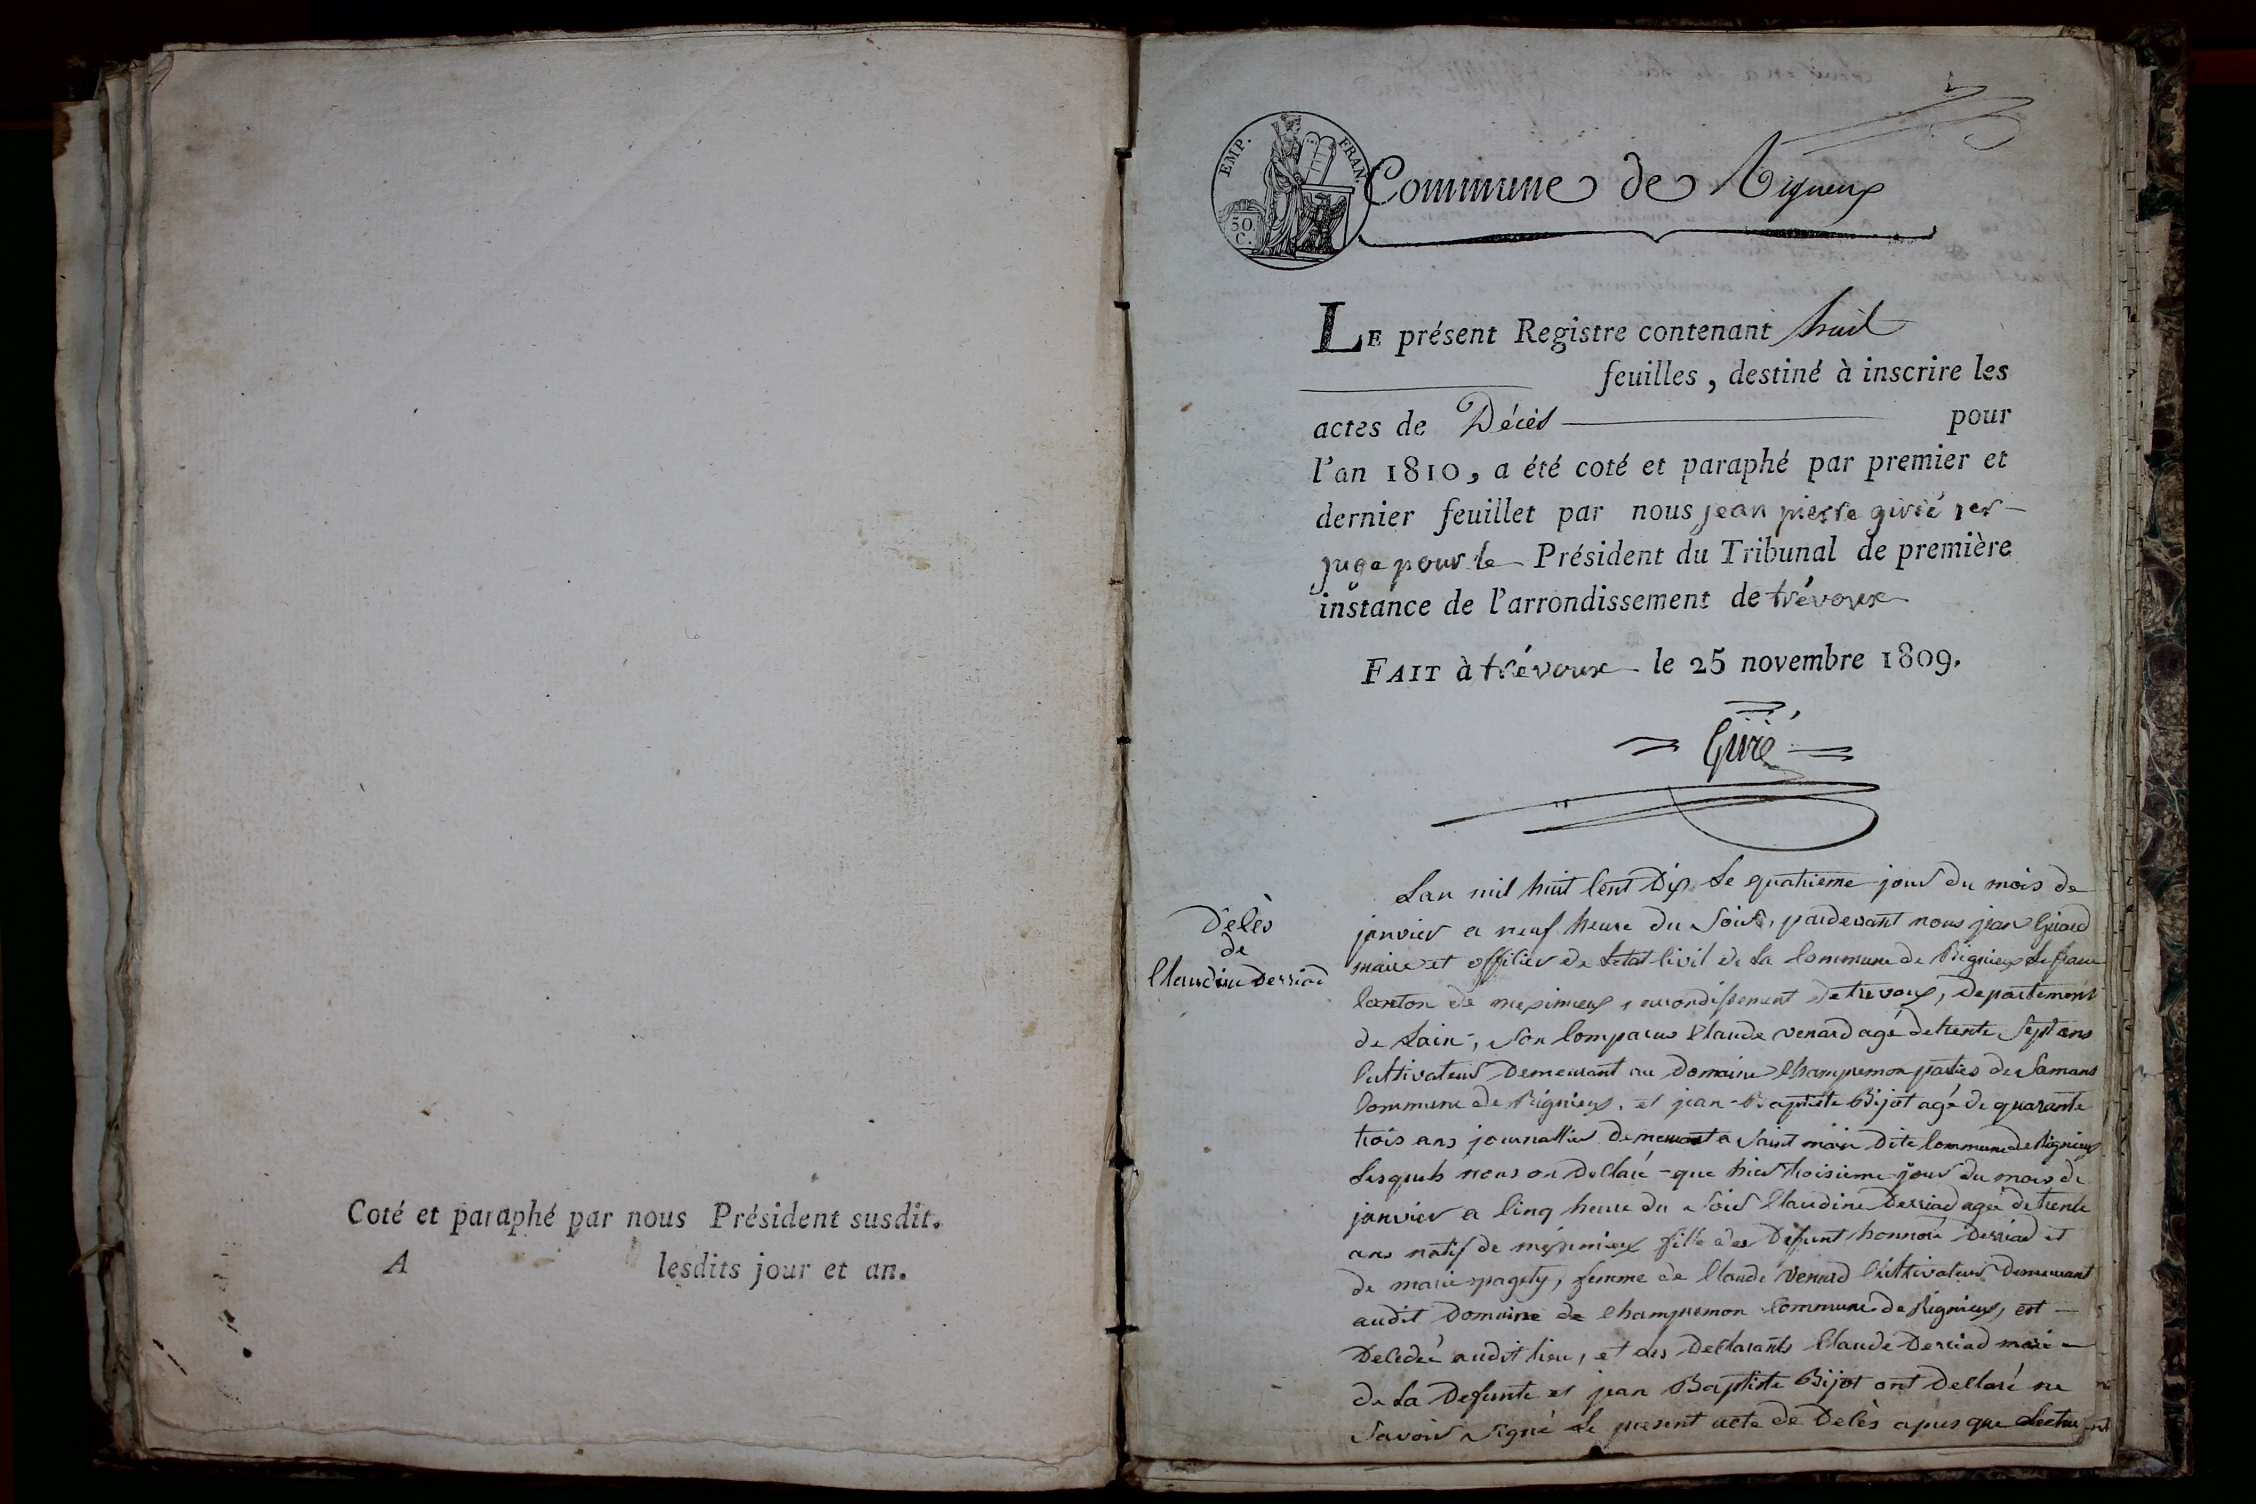 Coté et paraphé par nous Président susdit.
A lesdits jour et an.
EMP. FRAN.
50.
C.
Commune de Rigneux
LE présent Registre contenant huit
feuilles, destiné à inscrire les
actes de Décès pour
l'an 1810, a été coté et paraphé par premier et
dernier feuillet par nous jean pierre girié 1er
juge pour le Président du Tribunal de première
instance de l'arrondissement de trévoux
FAIT à trévoux le 25 novembre 1809.
Girié
Decès
de
Claudine Derriad
Lan mil huit Cent Dix Le quatrieme jour du mois de
janvier a neuf heure du Soir, pardevant nous jean
maire et officier de Letat Civil de La Commune de Rignieux Le franc
Canton de meximieux, arrondissement de trevoux, Departement
de Lain, Son Comparus Claude venard agé de trente Sept ans
Cultivateur Demeurant au Domaine Champremon parties de Samans
Commune de Rignieux, et jean-Baptiste Bijot agé de quarante
trois ans journallier Demeurant a Saint Dite Commune de Rignieux
Lesquels nous on Declaré que hier troisieme jour du mois de
janvier a Cinq heure du Soir Claudine Derriad agée de trente
ans natif de meximieux fille des Defunt honnoré Derriad et
de marie pagety, femme de Claude Venard Cultivateur Demeurant
audit Domaine de Champremon Commune de Rignieux, est
Decedeé audit lieu, et les Declarants Claude Derriad mari
de La Defunte et jean Baptiste Bijot ont Declaré ne
Savoir Signé Le present acte de Decès apres que Lecture